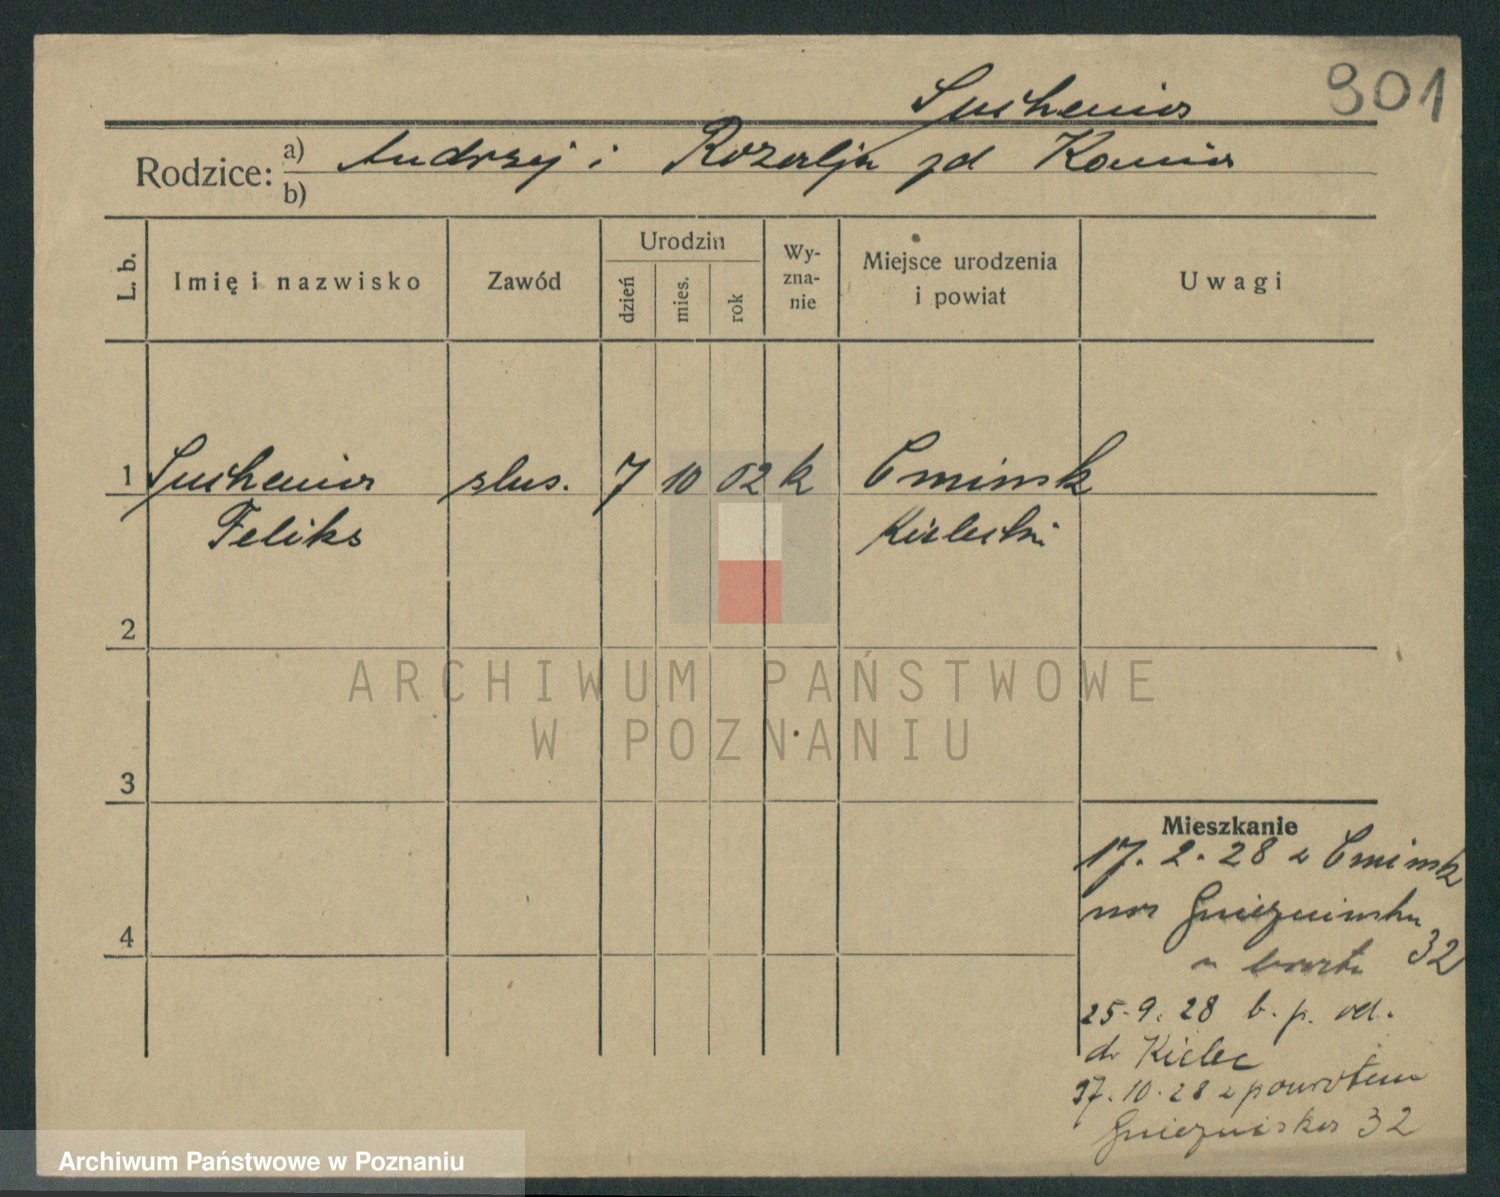 901
Suchenia
Rodzice: a) Andrzej i Rozalja zd Kania
b)
L. b.
Imię i nazwisko
Zawód
Urodzin
dzień
mies.
rok
Wy-
zna-
nie
Miejsce urodzenia
i powiat
Uwagi
1 Suchenia ślus. 7 10 02 k Ćmińsk
Feliks Kielecki
2
ARCHIWUM PAŃSTWOWE
W POZNANIU
3
Mieszkanie
17. 2. 28 z Ćmińsk
na Gnieźnieńska
32
25. 9. 28 b. p. od.
do Kielc
17. 10. 28 z powrotem
Gnieźnińska 32
4
Archiwum Państwowe w Poznaniu